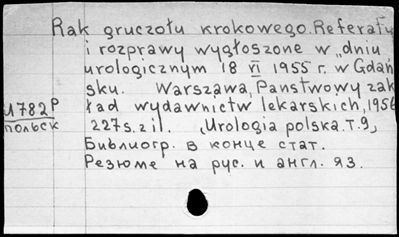 Rak gruczołu krokowego. Referaty
i rozprawy wygłoszone w „dniu
urologicznym 18 VI 1955 r. w Gdań
sku. Warszawa, Państwowy zak
ład wydawnictw lekarskich, 1956
227 s. z il. (Urologia polska. T. 9)
Библиогр. в конце стат.
Резюме на рус. и англ. яз.
U782P
польск